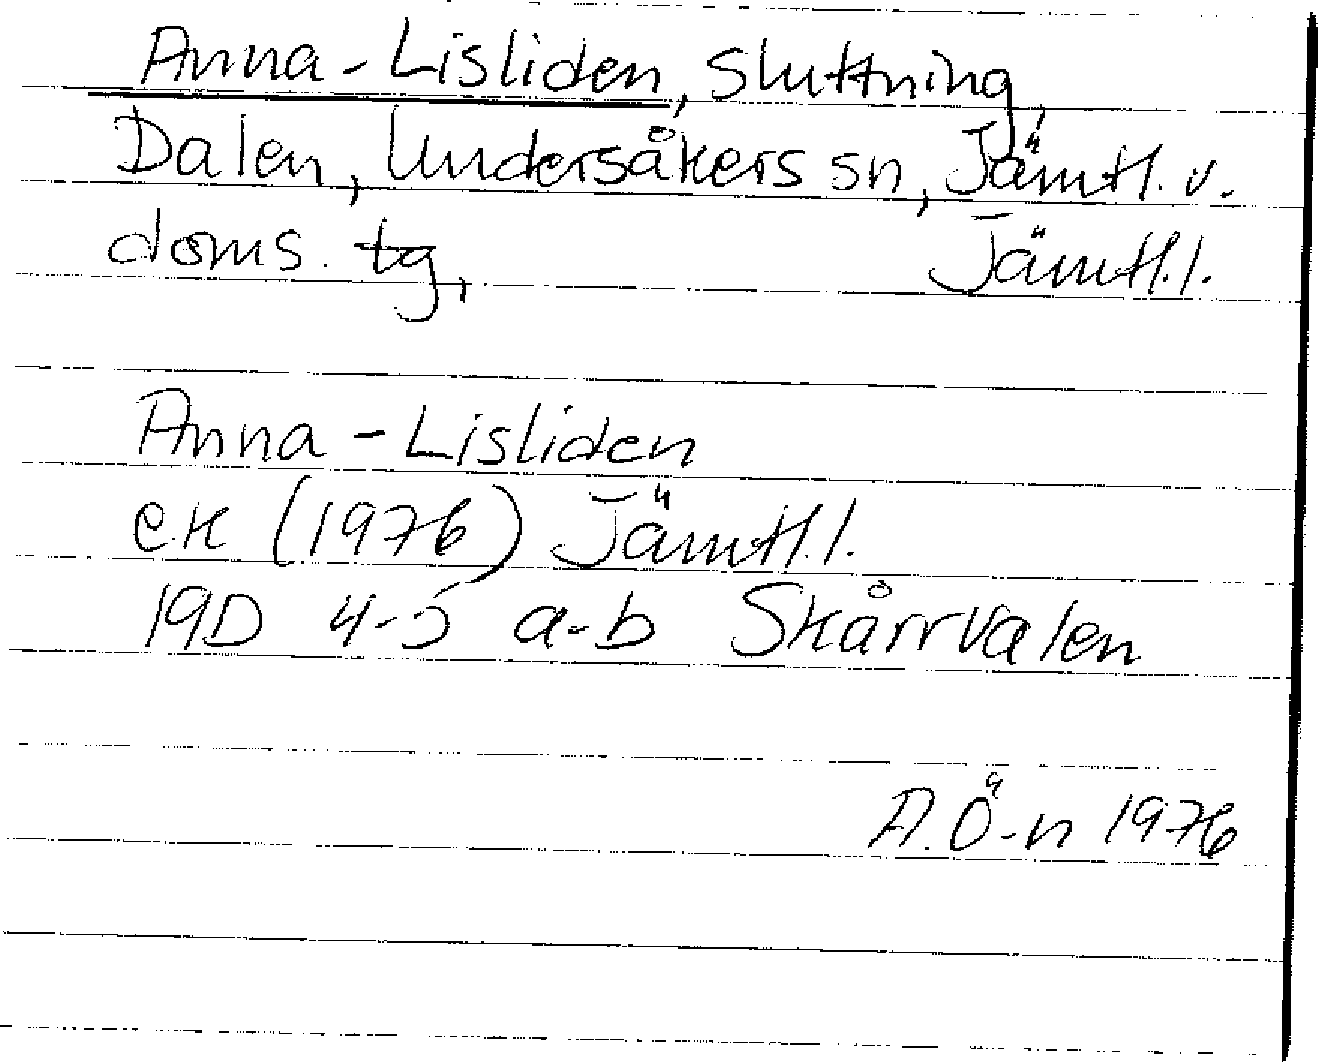 Anna-Lisliden, sluttning,
Dalen, Undersåkers sn, Jämtl. v.
doms. tg, Jämtl.l.
Anna-Lisliden
ek (1976) Jämtl.l.
19D 4-5 a-b Skårrvalen
A.Ö-n 1976